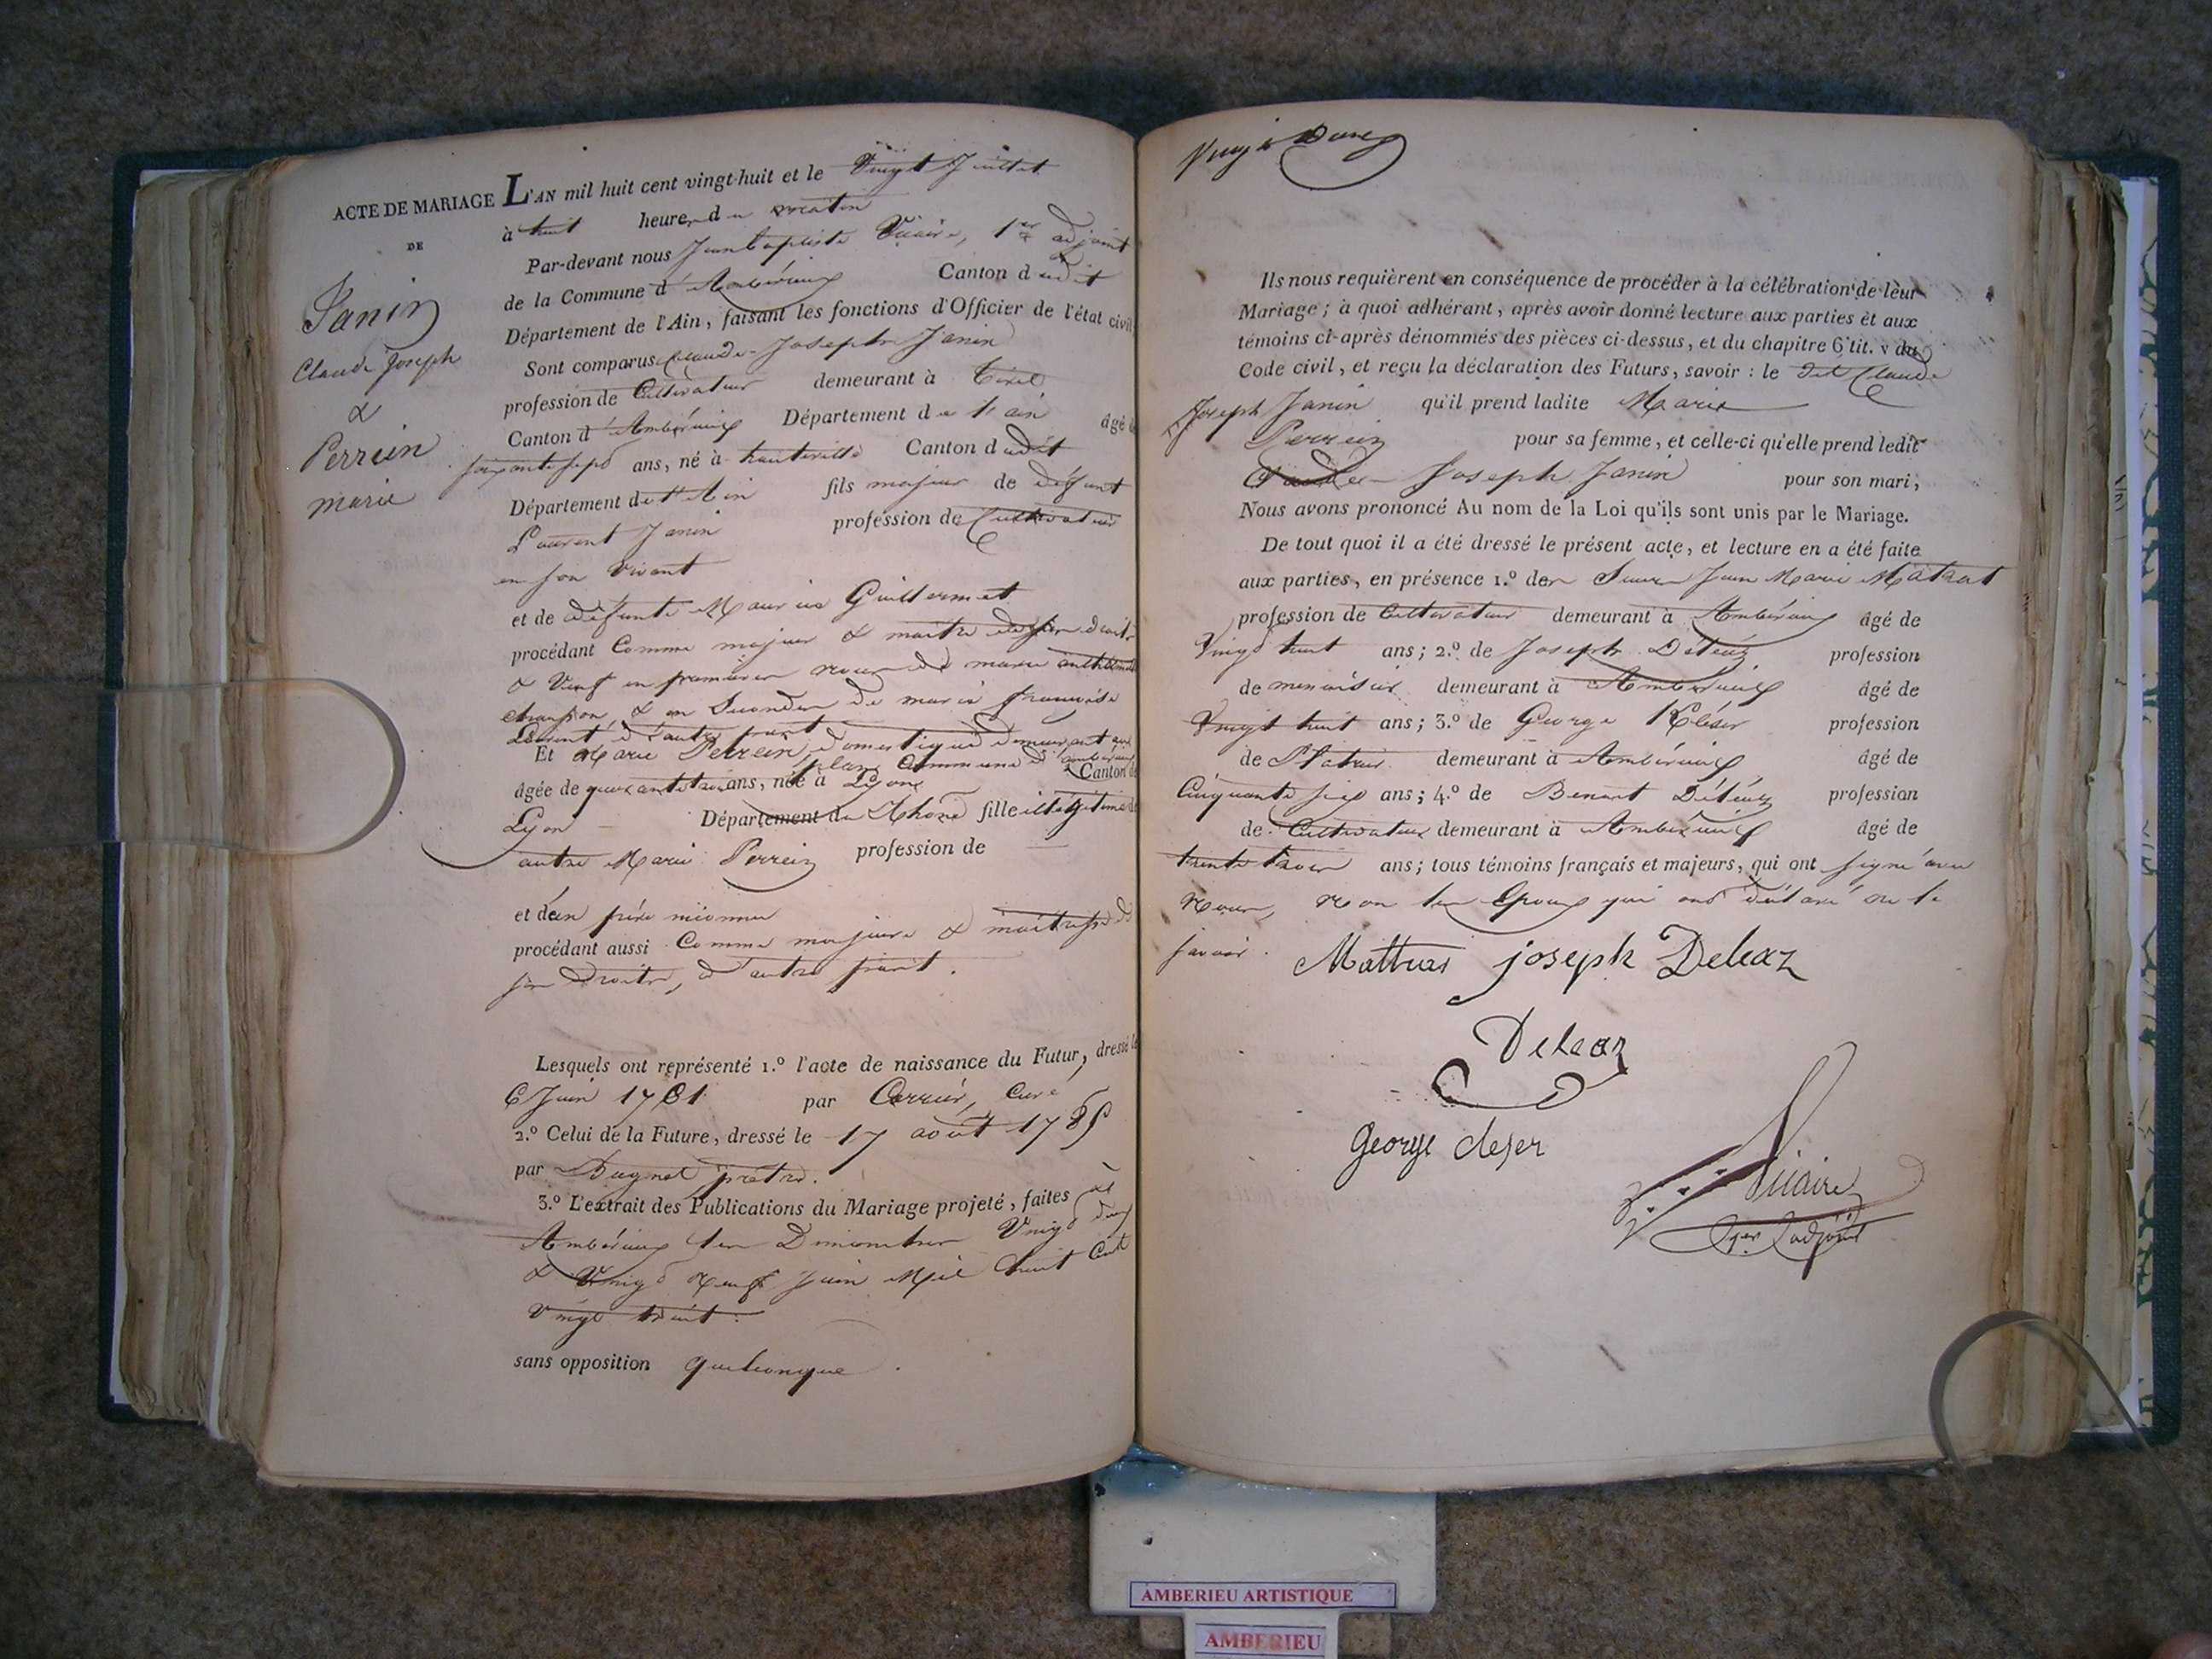 ACTE DE MARIAGE
DE
Janin
Claude Joseph
&
Perrein
marie
L'AN mil huit cent vingt-huit et le Vingt Juillet
à huit heures du matin
Par-devant nous Jean Baptiste Vicaire, 1er adjoint
de la Commune d'Ambérieux Canton dudit
Département de l'Ain, faisant les fonctions d'Officier de l'état civil
Sont comparus Claude-Joseph Janin
profession de Cultivateur demeurant à
Canton d'Ambérieux Département de l'ain âgé de
soixante sept ans, né à hauteville Canton dudit
Département de l'Ain fils majeur de défunt
Laurent Janin profession de Cultivateur
en son vivant
et de défunte Guillermet
procédant Comme majeur & maitre de ses droits
& Veuf en premières noces de marie anthelmette
& en Secondes de marie françoise
d'autre part
Et Marie Perrein, domestique demeurant aux
Commune d'ambérieux
âgée de quarante trois ans, née à Lyon Canton de
Lyon Département du Rhône fille illégitime de
autre Marie Perrein profession de
et d'un père inconnu
procédant aussi Comme majeure & maitresse de
ses Droits, d'autre part.
Lesquels ont représenté 1.º l'acte de naissance du Futur, dressé le
6 Juin 1761 par Carrier, Curé
2.º Celui de la Future, dressé le 17 août 1785
par Dugnel prêtre.
3.º L'extrait des Publications du Mariage projeté, faites à
Ambérieux les Dimanches Vingt deux
& Vingt neuf Juin Mil huit Cent
Vingt huit.
sans opposition quelconque.
Vingt Deux
Ils nous requièrent en conséquence de procéder à la célébration de leur
Mariage; à quoi adhérant, après avoir donné lecture aux parties et aux
témoins ci-après dénommés des pièces ci-dessus, et du chapitre 6 tit. v du
Code civil, et reçu la déclaration des Futurs, savoir : le dit Claude
Joseph Janin qu'il prend ladite Marie
Perrein pour sa femme, et celle-ci qu'elle prend ledit
Claude-Joseph Janin pour son mari;
Nous avons prononcé Au nom de la Loi qu'ils sont unis par le Mariage.
De tout quoi il a été dressé le présent acte, et lecture en a été faite
aux parties, en présence 1.º des Sieurs Jean Marie
profession de Cultivateur demeurant à Ambérieux âgé de
Vingt huit ans; 2.º de Joseph Deleaz profession
de menuisier demeurant à Ambérieux âgé de
Vingt huit ans; 3.º de George Kléser profession
de Platrier demeurant à Ambérieux âgé de
Cinquante six ans; 4.º de Benoit Déléaz profession
de Cultivateur demeurant à Ambérieux âgé de
trente trois ans; tous témoins français et majeurs, qui ont signé avec
Nous, Non les Epoux qui ont déclaré ne le
savoir.
joseph Deleaz
Deleaz
George cleser
Vicaire
1er adjoint
AMBERIEU ARTISTIQUE
AMBERIEU